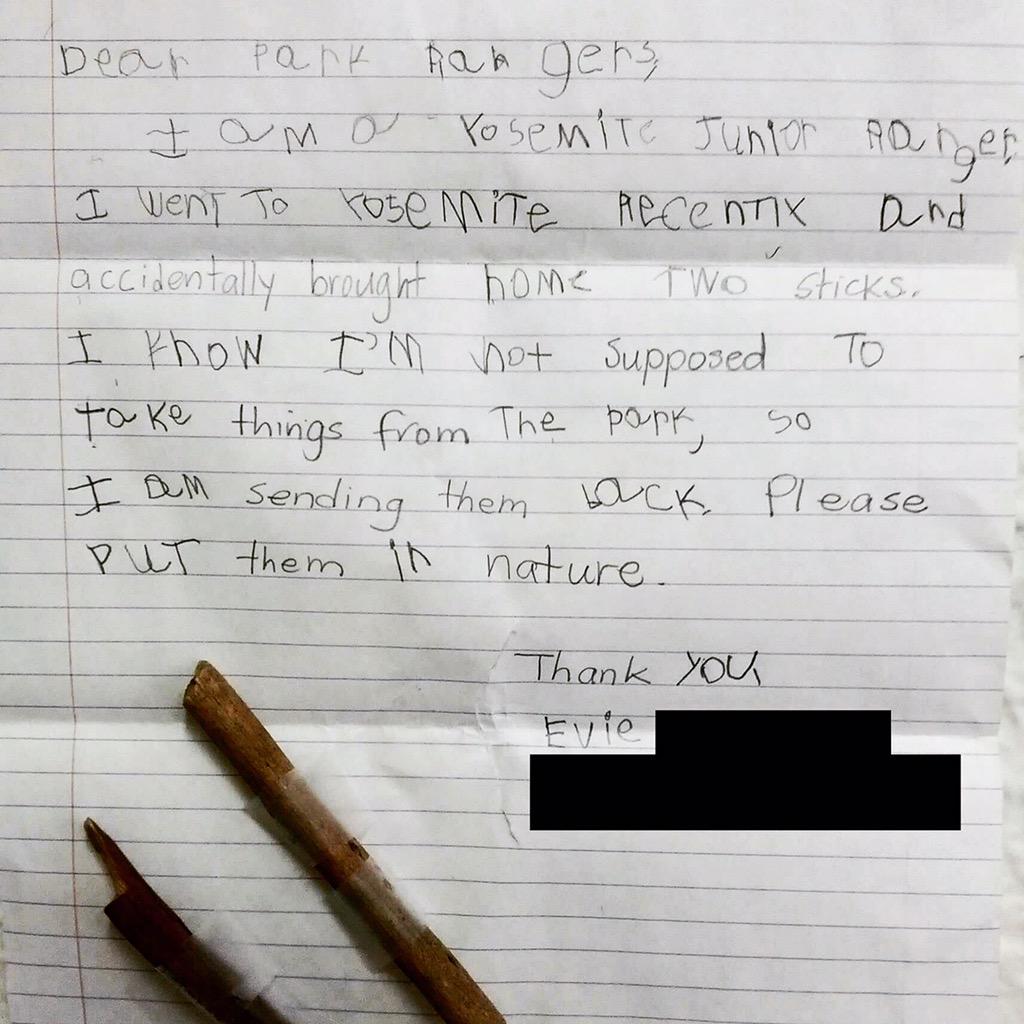 Dear Park Rangers,
I am a Yosemite Junior Ranger.
I went to Yosemite recently and
accidentally brought home two sticks.
I know I'm not supposed to
take things from the park, so
I am sending them back. Please
put them in nature.
Thank you,
Evie